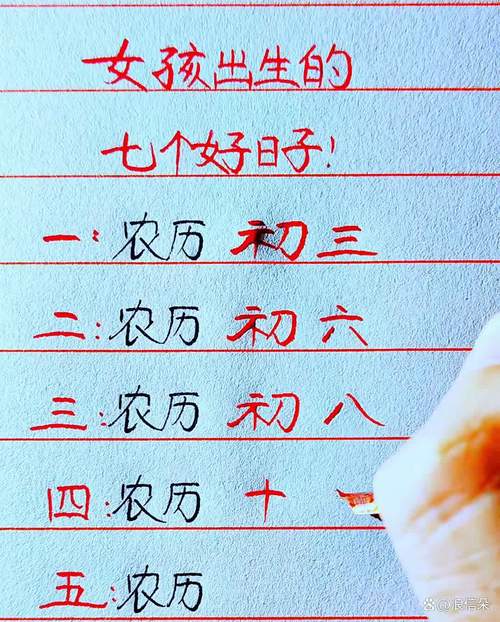 女孩出生的
七个好日子!
一:农历 初三
二:农历 初六
三:农历 初八
四:农历 十
五:农历
@良信朵